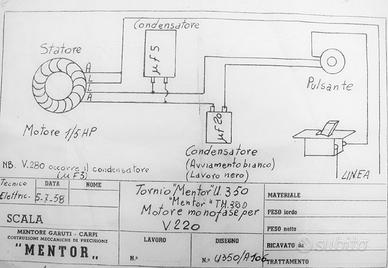 Condensatore
Statore
µF5
A
L
L
A
Pulsante
Motore 1/5 HP
µF20
Condensatore
(Avviamento bianco)
(Lavoro nero)
LINEA
NB. V.280 occorre il condensatore
(µF3)
Tecnico
Elettric.
DATA
5-3-58
NOME
SCALA
MENTORE GARUTI - CARPI
COSTRUZIONI MECCANICHE DI PRECISIONE
"MENTOR"
Tornio "Mentor" U.350
"Mentor" TH.380
Motore monofase per
V220
LAVORO
N.°
DISEGNO
N.° U350/A106
MATERIALE
PESO lordo
PESO netto
RICAVATO da
TRATTAMENTO
subito